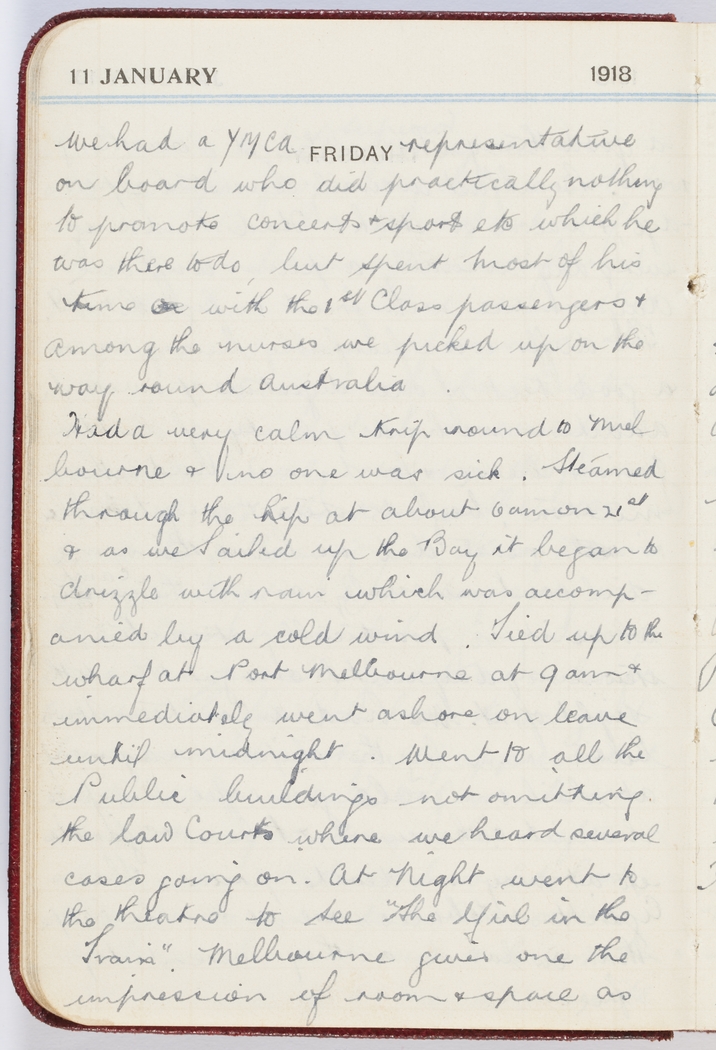 11 JANUARY 1918
We had a YMCA FRIDAY representative
on board who did practically nothing
to promote concerts & sport etc which he
was there to do, but spent most of his
time with the 1st Class passengers &
among the nurses we picked up on the
way round Australia.
Had a very calm trip round to Mel
bourne & no one was sick. Steamed
through the Rip at about 6am on 21st
& as we Sailed up the Bay it began to
drizzle with rain which was accomp-
anied by a cold wind. Tied up to the
wharf at Port Melbourne at 9 am &
immediately went ashore on leave
until midnight. Went to all the
Public buildings not omitting
the law Courts where we heard several
cases going on. At Night went to
the theatre to see "The Girl in the
Train". Melbourne gives one the
impression of room & space as